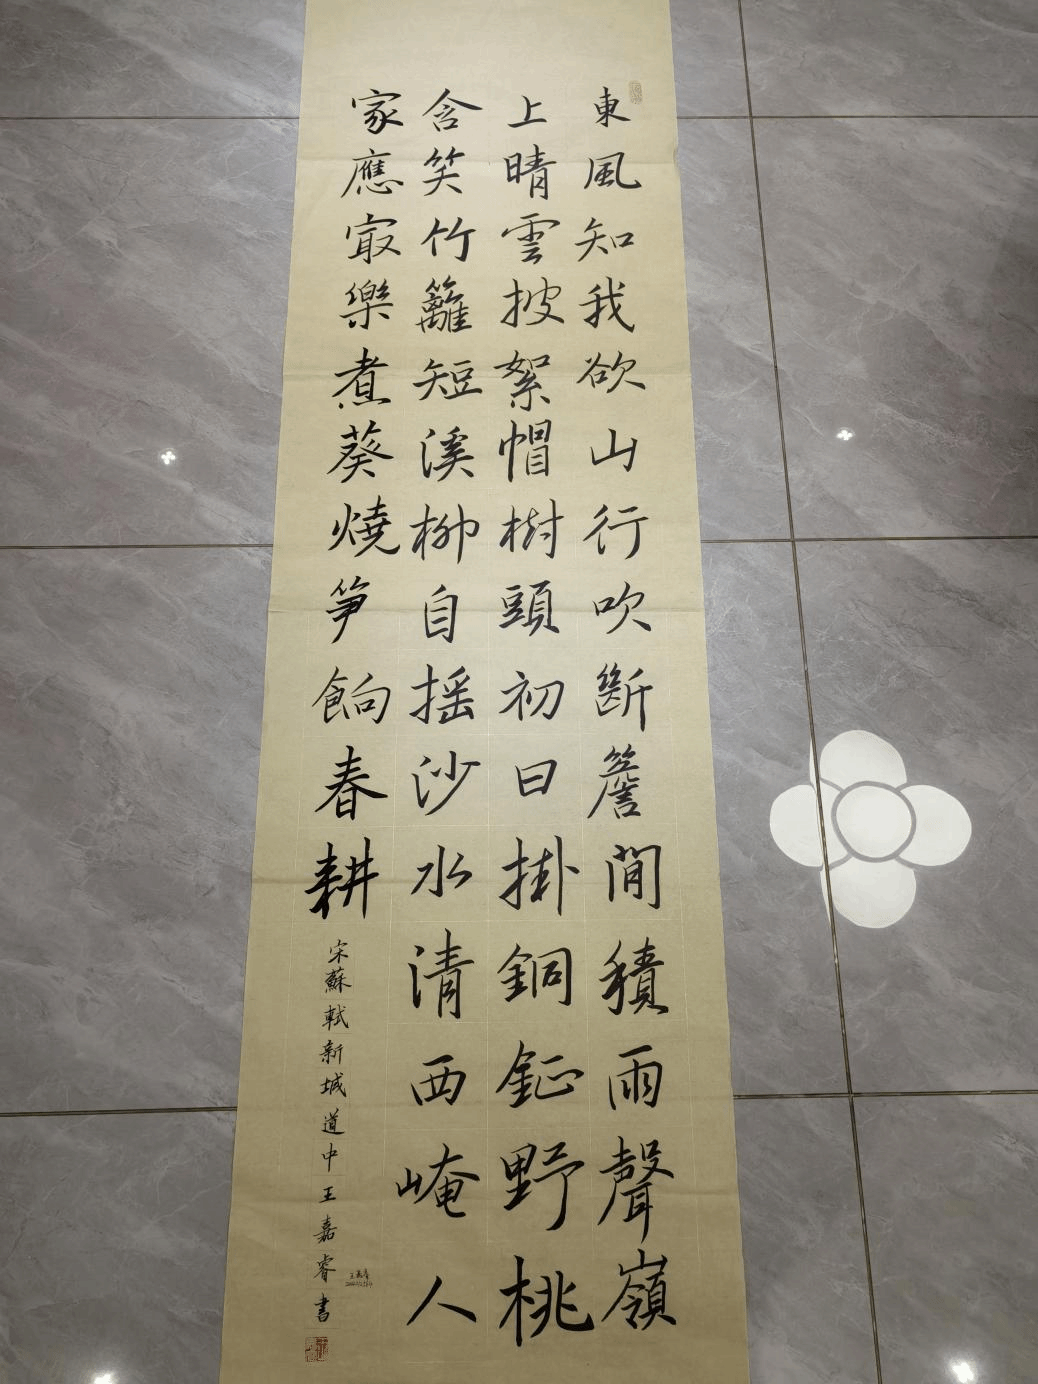 東風知我欲山行吹斷簷間積雨聲嶺
上晴雲披絮帽樹頭初日掛銅鉦野桃
含笑竹籬短溪柳自摇沙水清西崦人
家應㝡樂煮葵燒筍餉春耕
宋蘇軾新城道中王嘉睿書